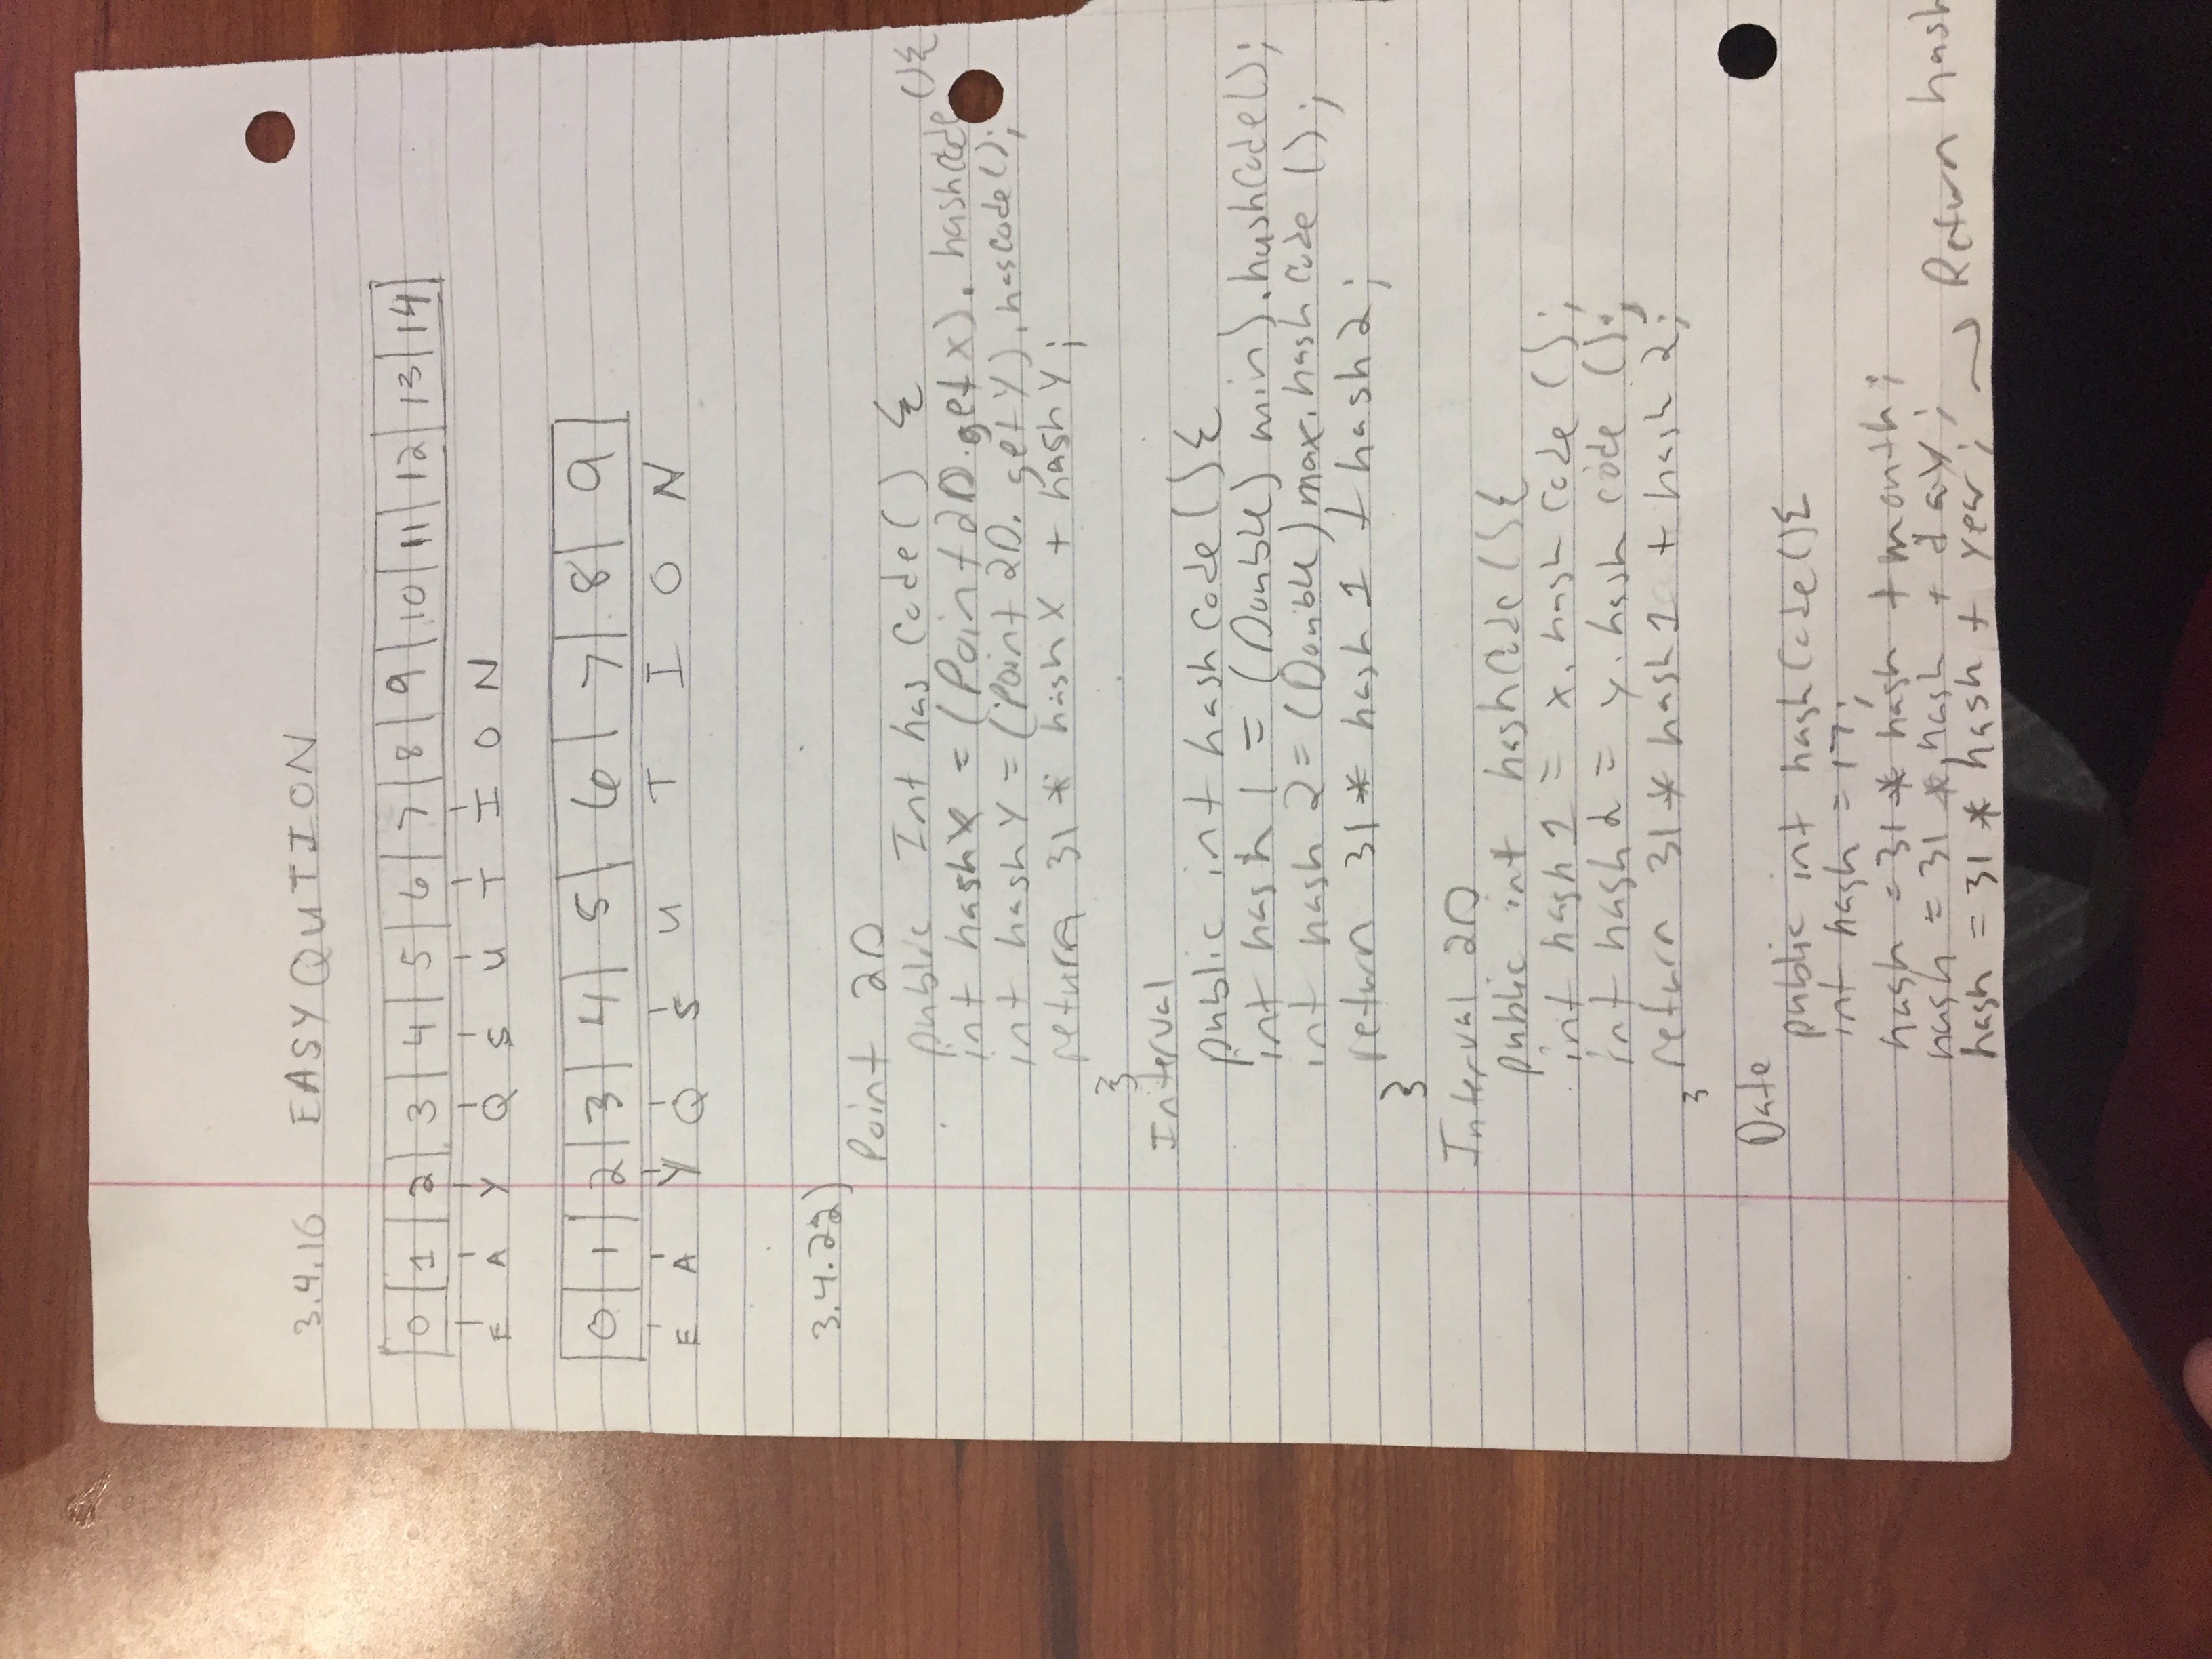 3.4.10 EASY QUTION
0 1 2 3 4 5 6 7 8 9 10 11 12 13 14
E A Y Q S U T I O N
0 1 2 3 4 5 6 7 8 9
E A Y Q S U T I O N
3.4.22)
Point 2D
public Int has Code() {
int hashX = (Point2D.getX). hashCode(){
int hashY = (Point 2D. getY).hascode();
return 31 * hashX + hashY;
}
Interval
public int hashCode(){
int hash 1 = (Double) min).hashCode();
int hash 2 = (Double) max. hash Code ();
return 31 * hash 1 + hash 2;
}
Interval 2D
public int hashCode(){
int hash 1 = x. hash Code ();
int hash 2 = y. hash code ();
return 31 * hash 1 + hash 2;
}
Date
public int hashCode(){
int hash = 17;
hash = 31 * hash + month;
hash = 31 * hash + day;
hash = 31 * hash + year; → Return hash